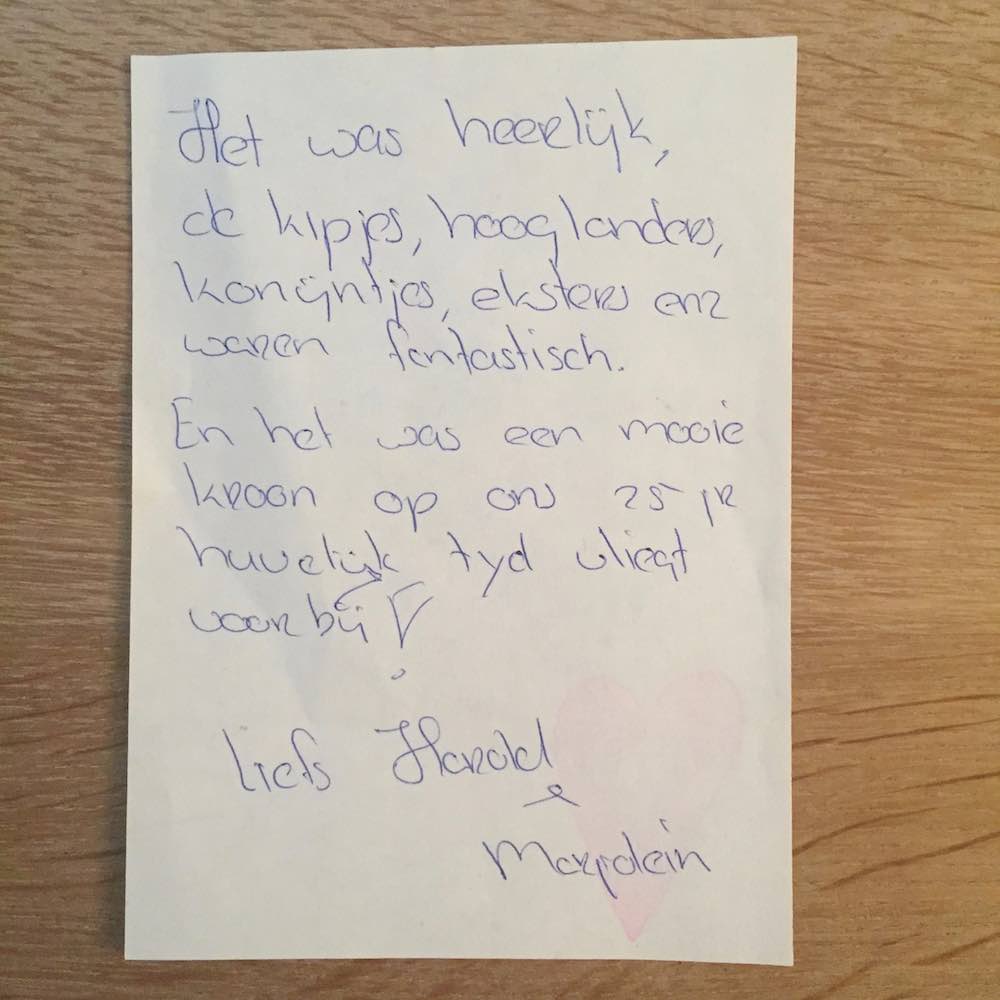 Het was heerlijk,
de kipjes, hooglanders,
konijntjes, eksters enz
waren fantastisch.
En het was een mooie
kroon op ons 25 jr
huwelijk tyd vliegt
voorbij!
liefs Harold
&
Marjolein